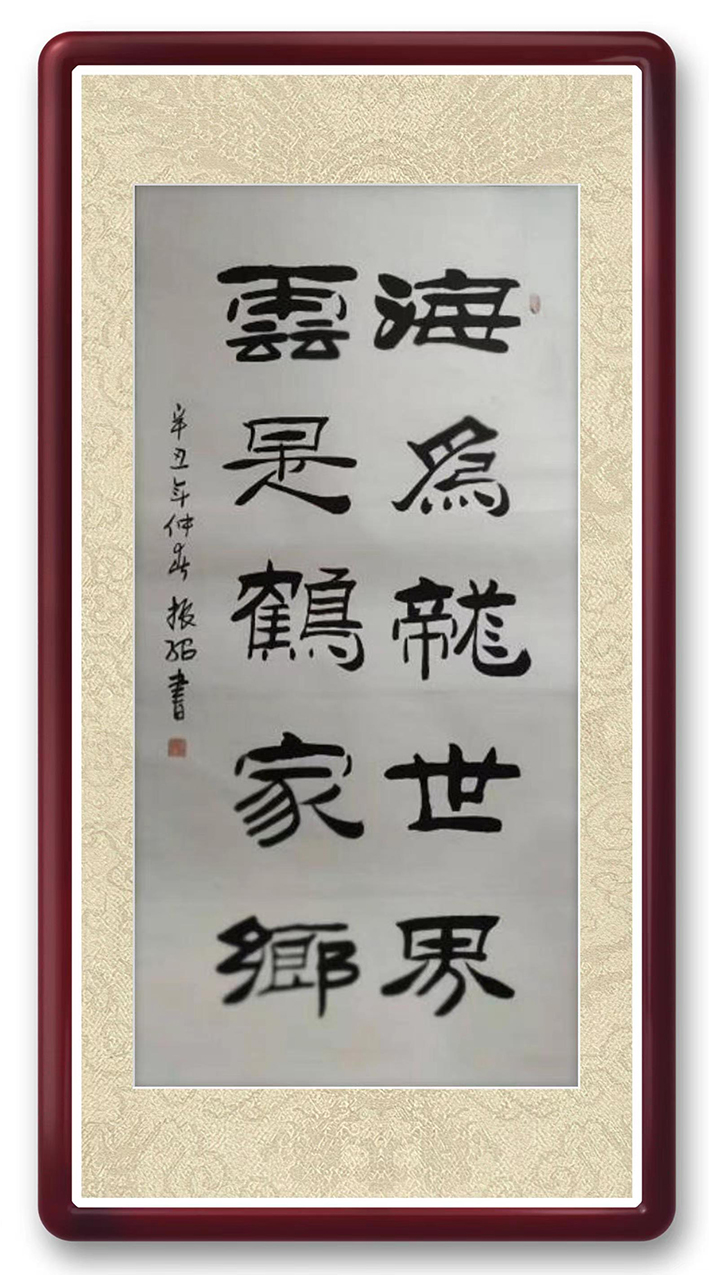 海為龍世界
雲是鶴家鄉
辛丑年仲春 振紹書